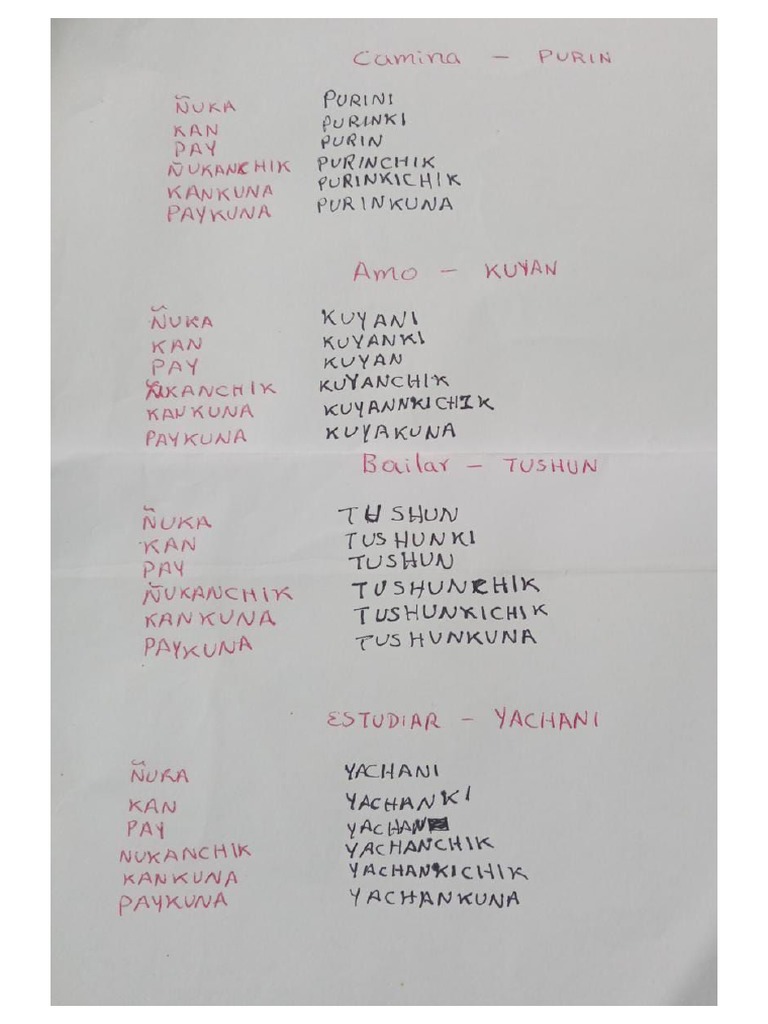 Camina - PURIN
ÑUKA PURINI
KAN PURINKI
PAY PURIN
ÑUKANCHIK PURINCHIK
KANKUNA PURINKICHIK
PAYKUNA PURINKUNA
Amo - KUYAN
ÑUKA KUYANI
KAN KUYANKI
PAY KUYAN
ÑUKANCHIK KUYANCHIK
KANKUNA KUYANNKICHIK
PAYKUNA KUYAKUNA
Bailar - TUSHUN
ÑUKA TUSHUN
KAN TUSHUNKI
PAY TUSHUN
ÑUKANCHIK TUSHUNCHIK
KANKUNA TUSHUNKICHIK
PAYKUNA TUSHUNKUNA
ESTUDIAR - YACHANI
ÑUKA YACHANI
KAN YACHANKI
PAY YACHAN
NUKANCHIK YACHANCHIK
KANKUNA YACHANKICHIK
PAYKUNA YACHANKUNA